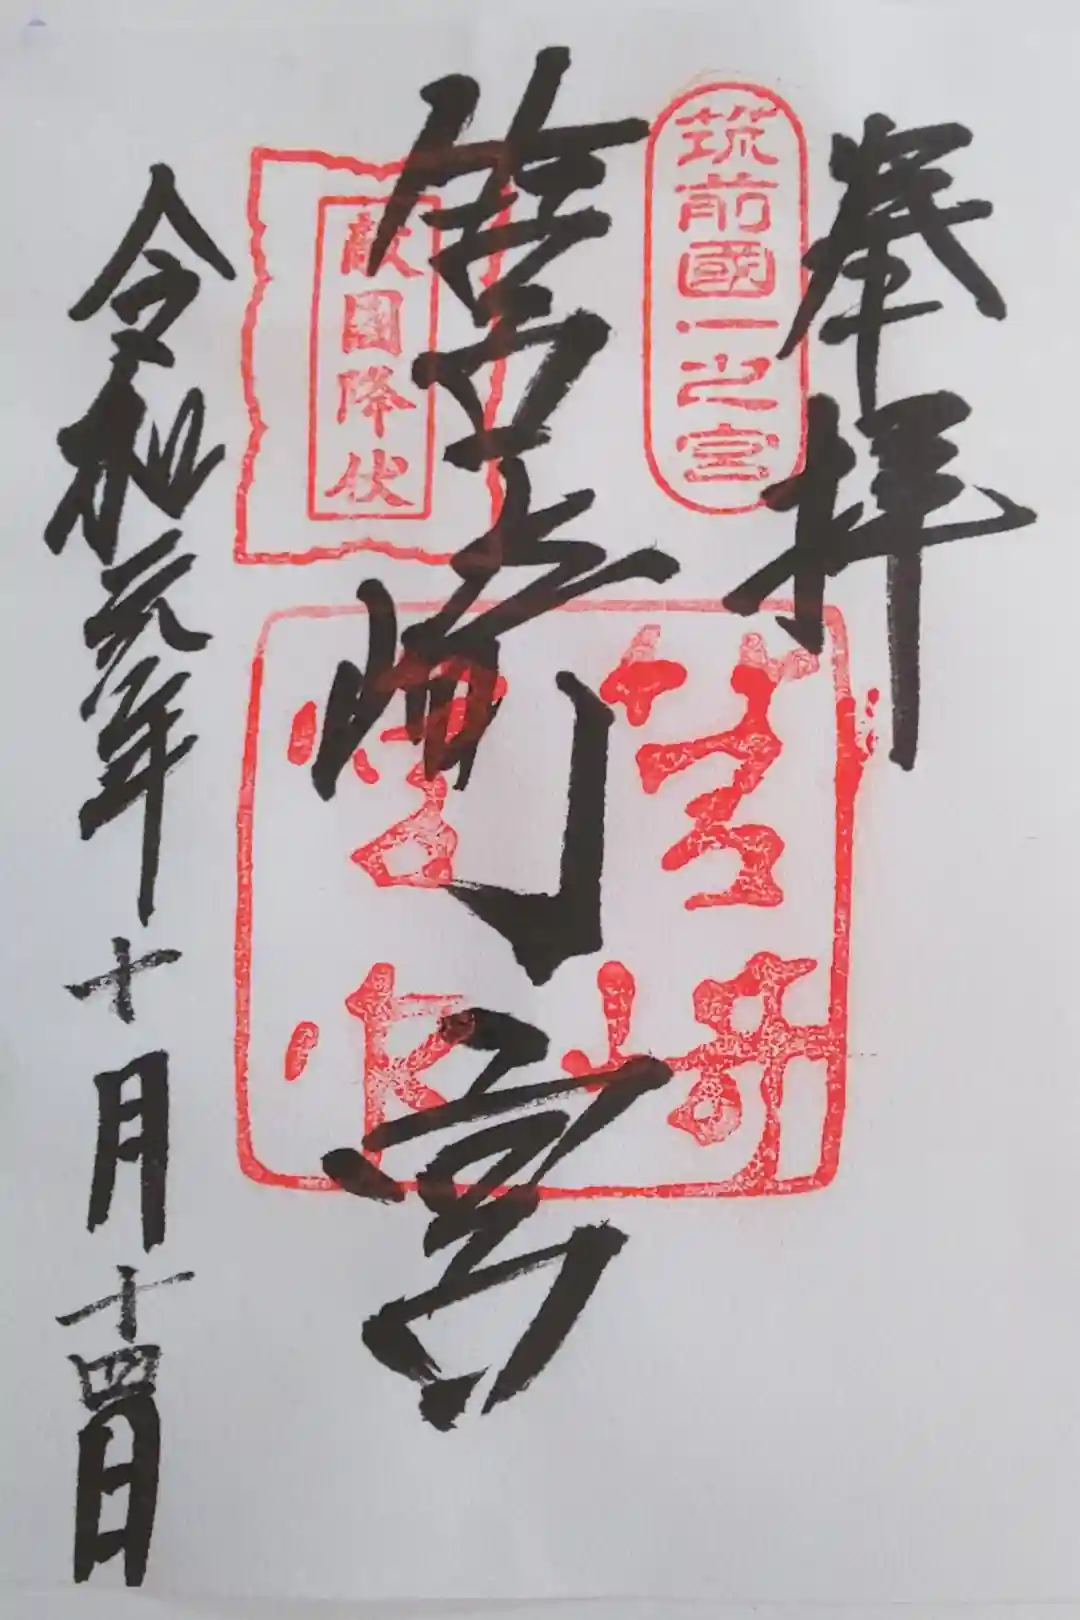 奉拝
筑前國一之宮
筥崎宮
筥崎
敵國降伏
令和元年十月十四日